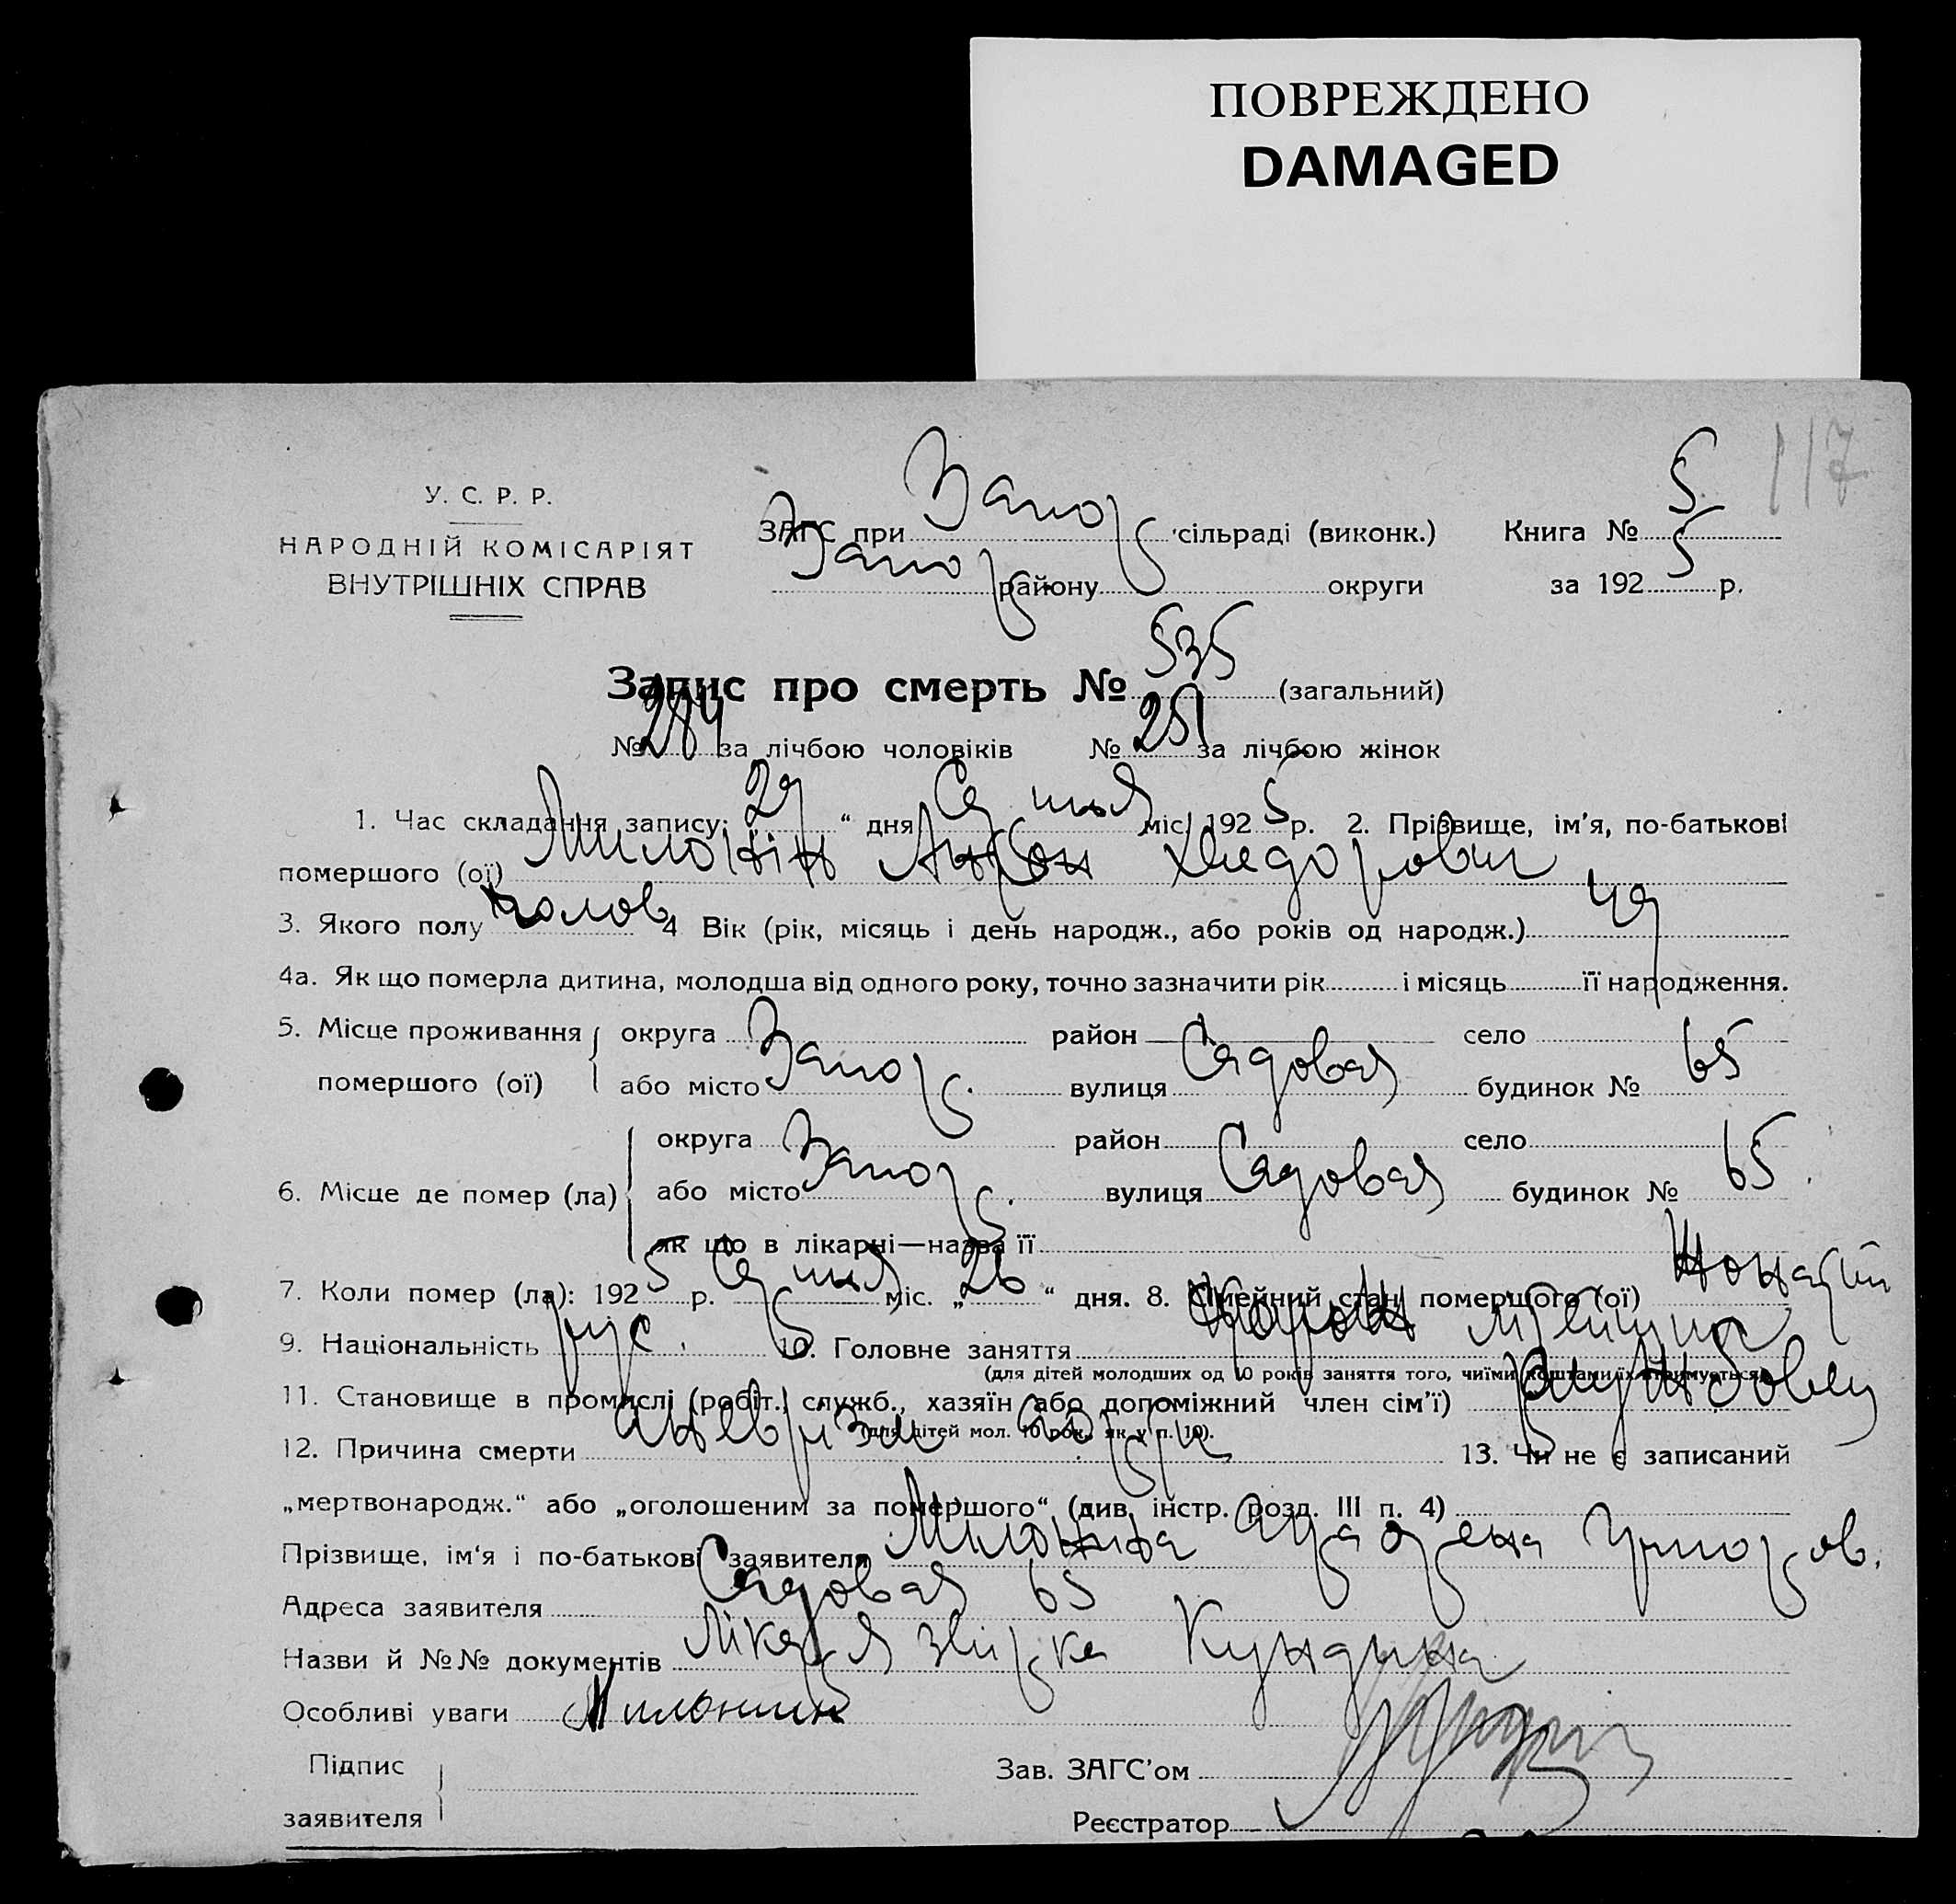 ПОВРЕЖДЕНО
DAMAGED
117
У. С. Р. Р.
НАРОДНІЙ КОМІСАРІЯТ
ВНУТРІШНІХ СПРАВ
ЗАГС при Запор сільраді (виконк.) Книга № 5
Запор району округи за 1925 р.
Запис про смерть № 535 (загальний)
№ 284 за лічбою чоловіків № 251 за лічбою жінок
1. Час складання запису: 27 “ дня міс. 1925 р. 2. Прізвище, ім'я, по-батькові
помершого (ої) Милонін Антон Хведорович
3. Якого полу чолов 4 Вік (рік, місяць і день народж., або років од народж.) 49
4а. Як що померла дитина, молодша від одного року, точно зазначити рік і місяць її народження.
5. Місце проживання округа район село
помершого (ої) або місто Запор. вулиця Садовая будинок № 65
округа район село
6. Місце де помер (ла) або місто Запор. вулиця Садовая будинок № 65.
як що в лікарні—назва її
7. Коли помер (ла): 1925 р. міс. „26“ дня. 8. Сімейний стан помершого (ої) Жонатий
9. Національність рус. 10. Головне заняття
(для дітей молодших од 10 років заняття того, чиїми коштами їх утримується)
11. Становище в промислі (робіт., служб., хазяїн або допоміжний член сім'ї)
(для дітей мол. 10 рок., як у п. 10).
12. Причина смерти аневрізм аорти 13. Чи не є записаний
„мертвонародж.“ або „оголошеним за помершого“ (див. інстр. розд. III п. 4)
Прізвище, ім'я і по-батькові заявителя Милонина
Адреса заявителя Садовая 65
Назви й №№ документів Лікаря Кундина
Особливі уваги Милонин
Підпис
заявителя
Зав. ЗАГС'ом
Реєстратор